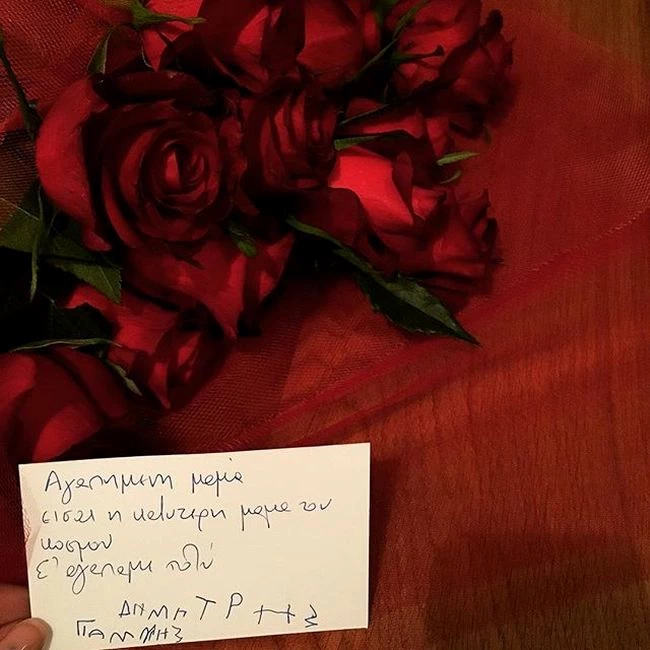 Αγαπημενη μαμα
εισαι η καλυτερη μαμα του
κοσμου
Σ' αγαπαμε πολύ
ΔΗΜΗΤΡΗΣ
ΓΙΑΝΝΗΣ